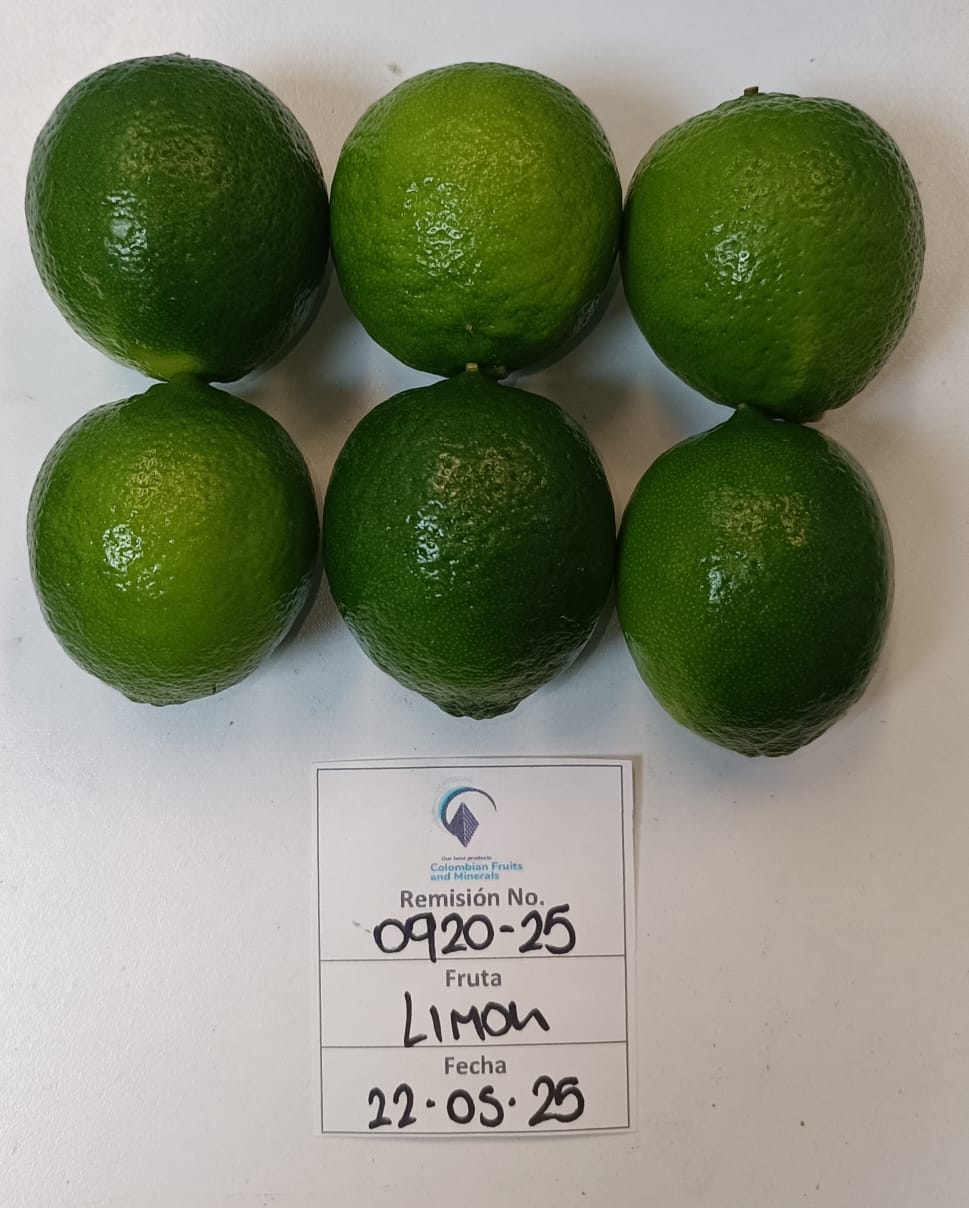 Our best products
Colombian Fruits
and Minerals
Remisión No.
0920-25
Fruta
LIMON
Fecha
22.05.25